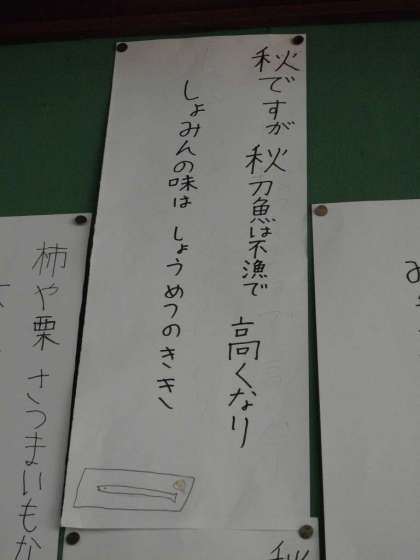 秋ですが 秋刀魚は不漁で 高くなり
しょみんの味は しょうめつのきき
柿や栗 さつまいもな
秋